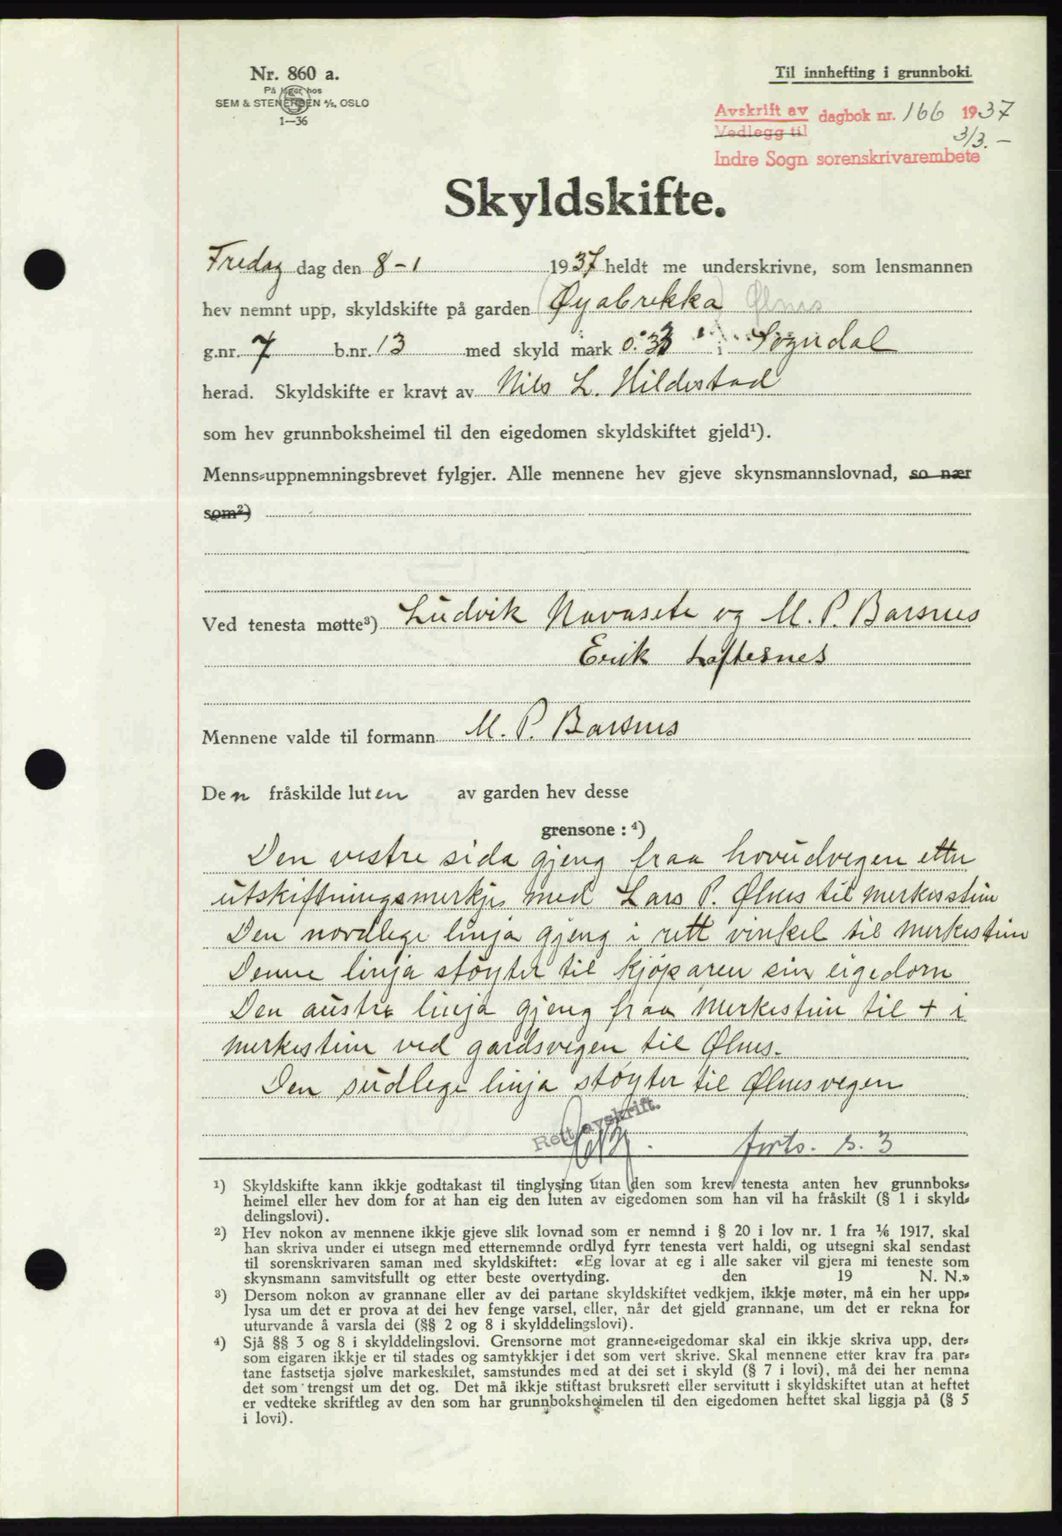 Nr. 860 a.
På lager hos
SEM & STENERSEN A/S, OSLO
1—36
Til innhefting i grunnboki.
Avskrift av dagbok nr. 166 1937
Vedlegg til 3/3. —
Indre Sogn sorenskrivarembete
Skyldskifte.
Fredag dag den 8-1 1937 heldt me underskrivne, som lensmannen
hev nemnt upp, skyldskifte på garden (Øyabrekka) Ølnes
g.nr. 7 b.nr. 13 med skyld mark 0.33 i Sogndal
herad. Skyldskifte er kravt av Nils L. Hildestad
som hev grunnboksheimel til den eigedomen skyldskiftet gjeld¹).
Menns-uppnemningsbrevet fylgjer. Alle mennene hev gjeve skynsmannslovnad, so nær
som²)
Ved tenesta møtte³) Ludvik Navasete og M. P. Barsnes
Erik Loftesnes
Mennene valde til formann M. P. Barsnes
Den fråskilde luten av garden hev desse
grensone: ⁴)
Den vestre sida gjeng fraa hovudvegen etter
utskiftningsmerkje med Lars P. Ølnes til merkesstein
Den nordlege linja gjeng i rett vinkel til merkestein
Denne linja støyter til kjøparen sin eigedom
Den austre linja gjeng fraa merkestein til + i
merkestein ved gardsvegen til Ølnes.
Den sudlege linja støyter til Ølnesvegen
Rett avskrift.
forts. s. 3
¹) Skyldskifte kann ikkje godtakast til tinglysing utan den som krev tenesta anten hev grunnboks-
heimel eller hev dom for at han eig den luten av eigedomen som han vil ha fråskilt (§ 1 i skyld-
delingslovi).
²) Hev nokon av mennene ikkje gjeve slik lovnad som er nemnd i § 20 i lov nr. 1 fra 1/6 1917, skal
han skriva under ei utsegn med etternemnde ordlyd fyrr tenesta vert haldi, og utsegni skal sendast
til sorenskrivaren saman med skyldskiftet: «Eg lovar at eg i alle saker vil gjera mi teneste som
skynsmann samvitsfullt og etter beste overtyding. den 19 N. N.»
³) Dersom nokon av grannane eller av dei partane skyldskiftet vedkjem, ikkje møter, må ein her upp-
lysa um det er prova at dei hev fenge varsel, eller, når det gjeld grannane, um det er rekna for
uturvande å varsla dei (§§ 2 og 8 i skylddelingslovi).
⁴) Sjå §§ 3 og 8 i skylddelingslovi. Grensorne mot granne-eigedomar skal ein ikkje skriva upp, der-
som eigaren ikkje er til stades og samtykkjer i det som vert skrive. Skal mennene etter krav fra par-
tane fastsetja sjølve markeskilet, samstundes med at dei set i skyld (§ 7 i lovi), må dei her nemna
det som trengst um det og. Det må ikkje stiftast bruksrett eller servitutt i skyldskiftet utan at heftet
er vedteke skriftleg av den som har grunnboksheimelen til den eigedomen heftet skal liggja på (§ 5
i lovi).